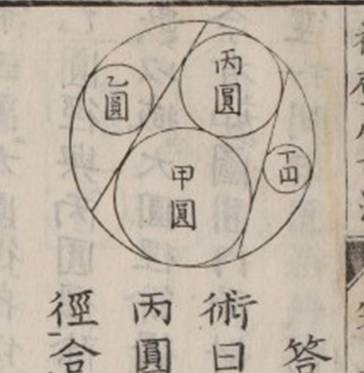 丙圓
乙圓
甲圓
丁円
答
術曰
丙圓
徑合